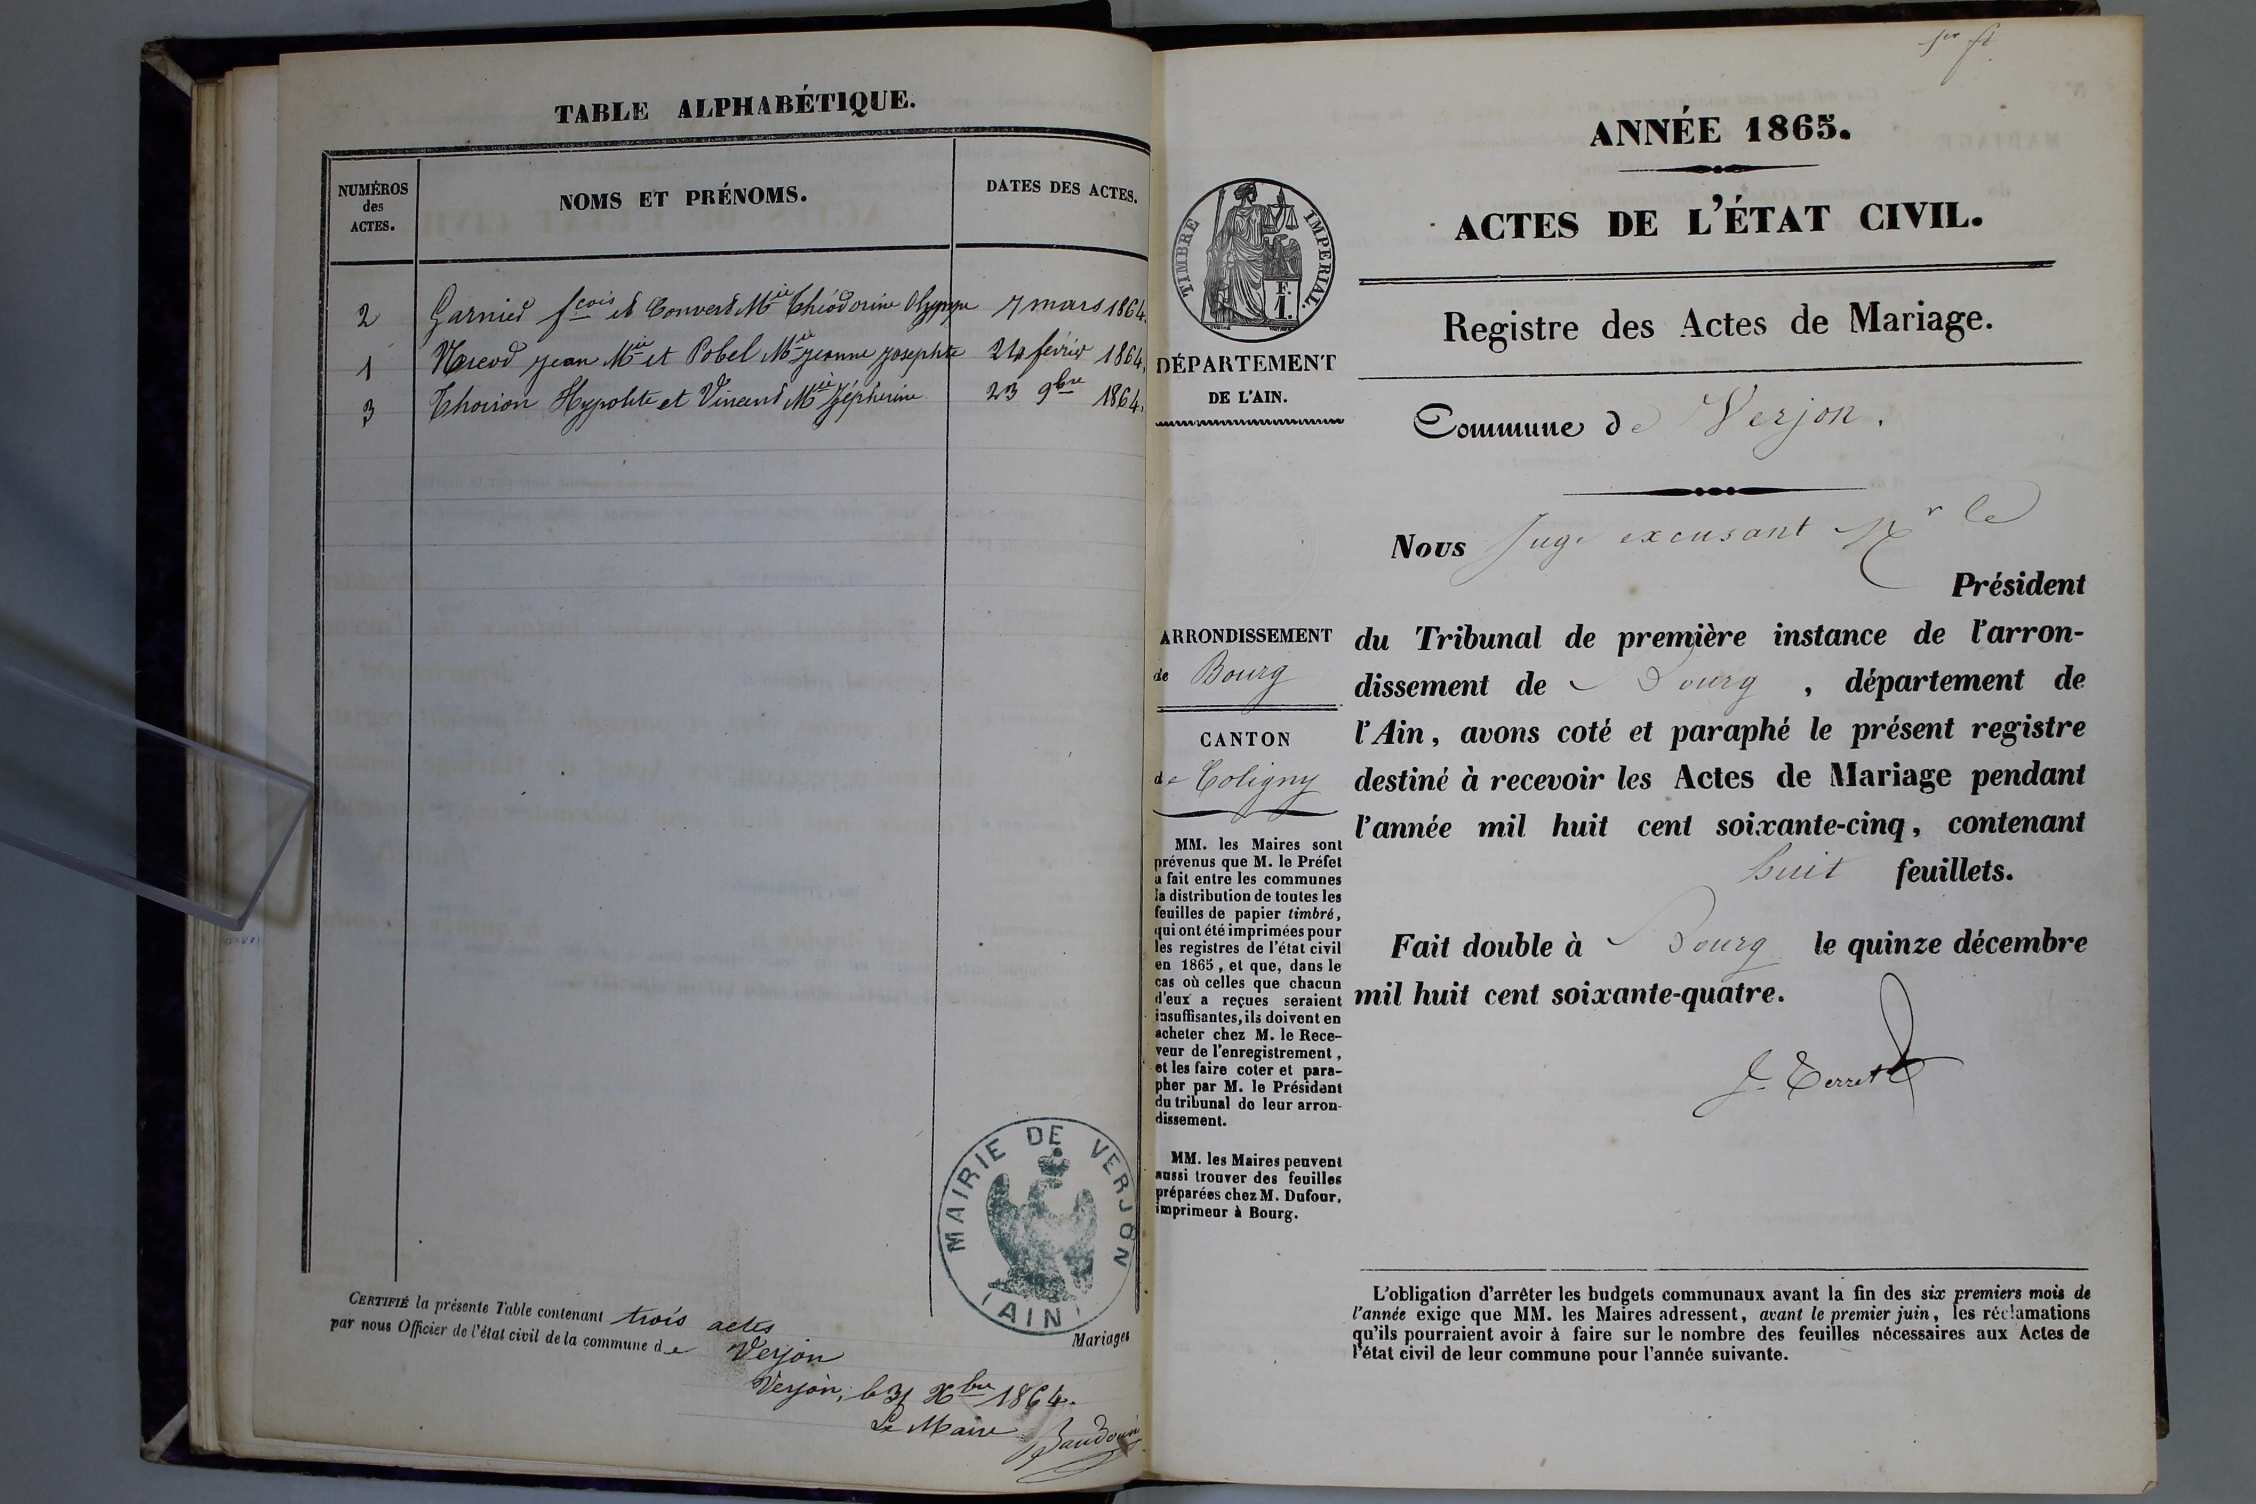 TABLE ALPHABÉTIQUE.
NUMÉROS
des
ACTES.
NOMS ET PRÉNOMS.
DATES DES ACTES.
2 Garnier fçois et Convert Mie Théodorine Olympe 7 mars 1864.
1 jean Mie et Pobel Mie jeanne josephte 24 février 1864.
3 Thoirion Hypolite et Vincent Mie Zépherine 23 9bre 1864.
MAIRIE DE VERJON
(AIN)
CERTIFIÉ la présente Table contenant trois actes
par nous Officier de l'état civil de la commune de Verjon
Mariages
Verjon, le 31 Xbre 1864.
Le Maire Baudouin
1er ft
ANNÉE 1865.
ACTES DE L'ÉTAT CIVIL.
Registre des Actes de Mariage.
TIMBRE IMPERIAL.
F.
1.
DÉPARTEMENT
DE L'AIN.
Commune de Verjon.
Nous Juge excusant Mr le
Président
du Tribunal de première instance de l'arron-
dissement de Bourg, département de
l'Ain, avons coté et paraphé le présent registre
destiné à recevoir les Actes de Mariage pendant
l'année mil huit cent soixante-cinq, contenant
huit feuillets.
Fait double à Bourg le quinze décembre
mil huit cent soixante-quatre.
J. Terret
ARRONDISSEMENT
de Bourg
CANTON
de Coligny
MM. les Maires sont
prévenus que M. le Préfet
a fait entre les communes
la distribution de toutes les
feuilles de papier timbré,
qui ont été imprimées pour
les registres de l'état civil
en 1865, et que, dans le
cas où celles que chacun
d'eux a reçues seraient
insuffisantes, ils doivent en
acheter chez M. le Rece-
veur de l'enregistrement,
et les faire coter et para-
pher par M. le Président
du tribunal de leur arron-
dissement.
MM. les Maires peuvent
aussi trouver des feuilles
préparées chez M. Dufour,
imprimeur à Bourg.
L'obligation d'arrêter les budgets communaux avant la fin des six premiers mois de
l'année exige que MM. les Maires adressent, avant le premier juin, les réclamations
qu'ils pourraient avoir à faire sur le nombre des feuilles nécessaires aux Actes de
l'état civil de leur commune pour l'année suivante.